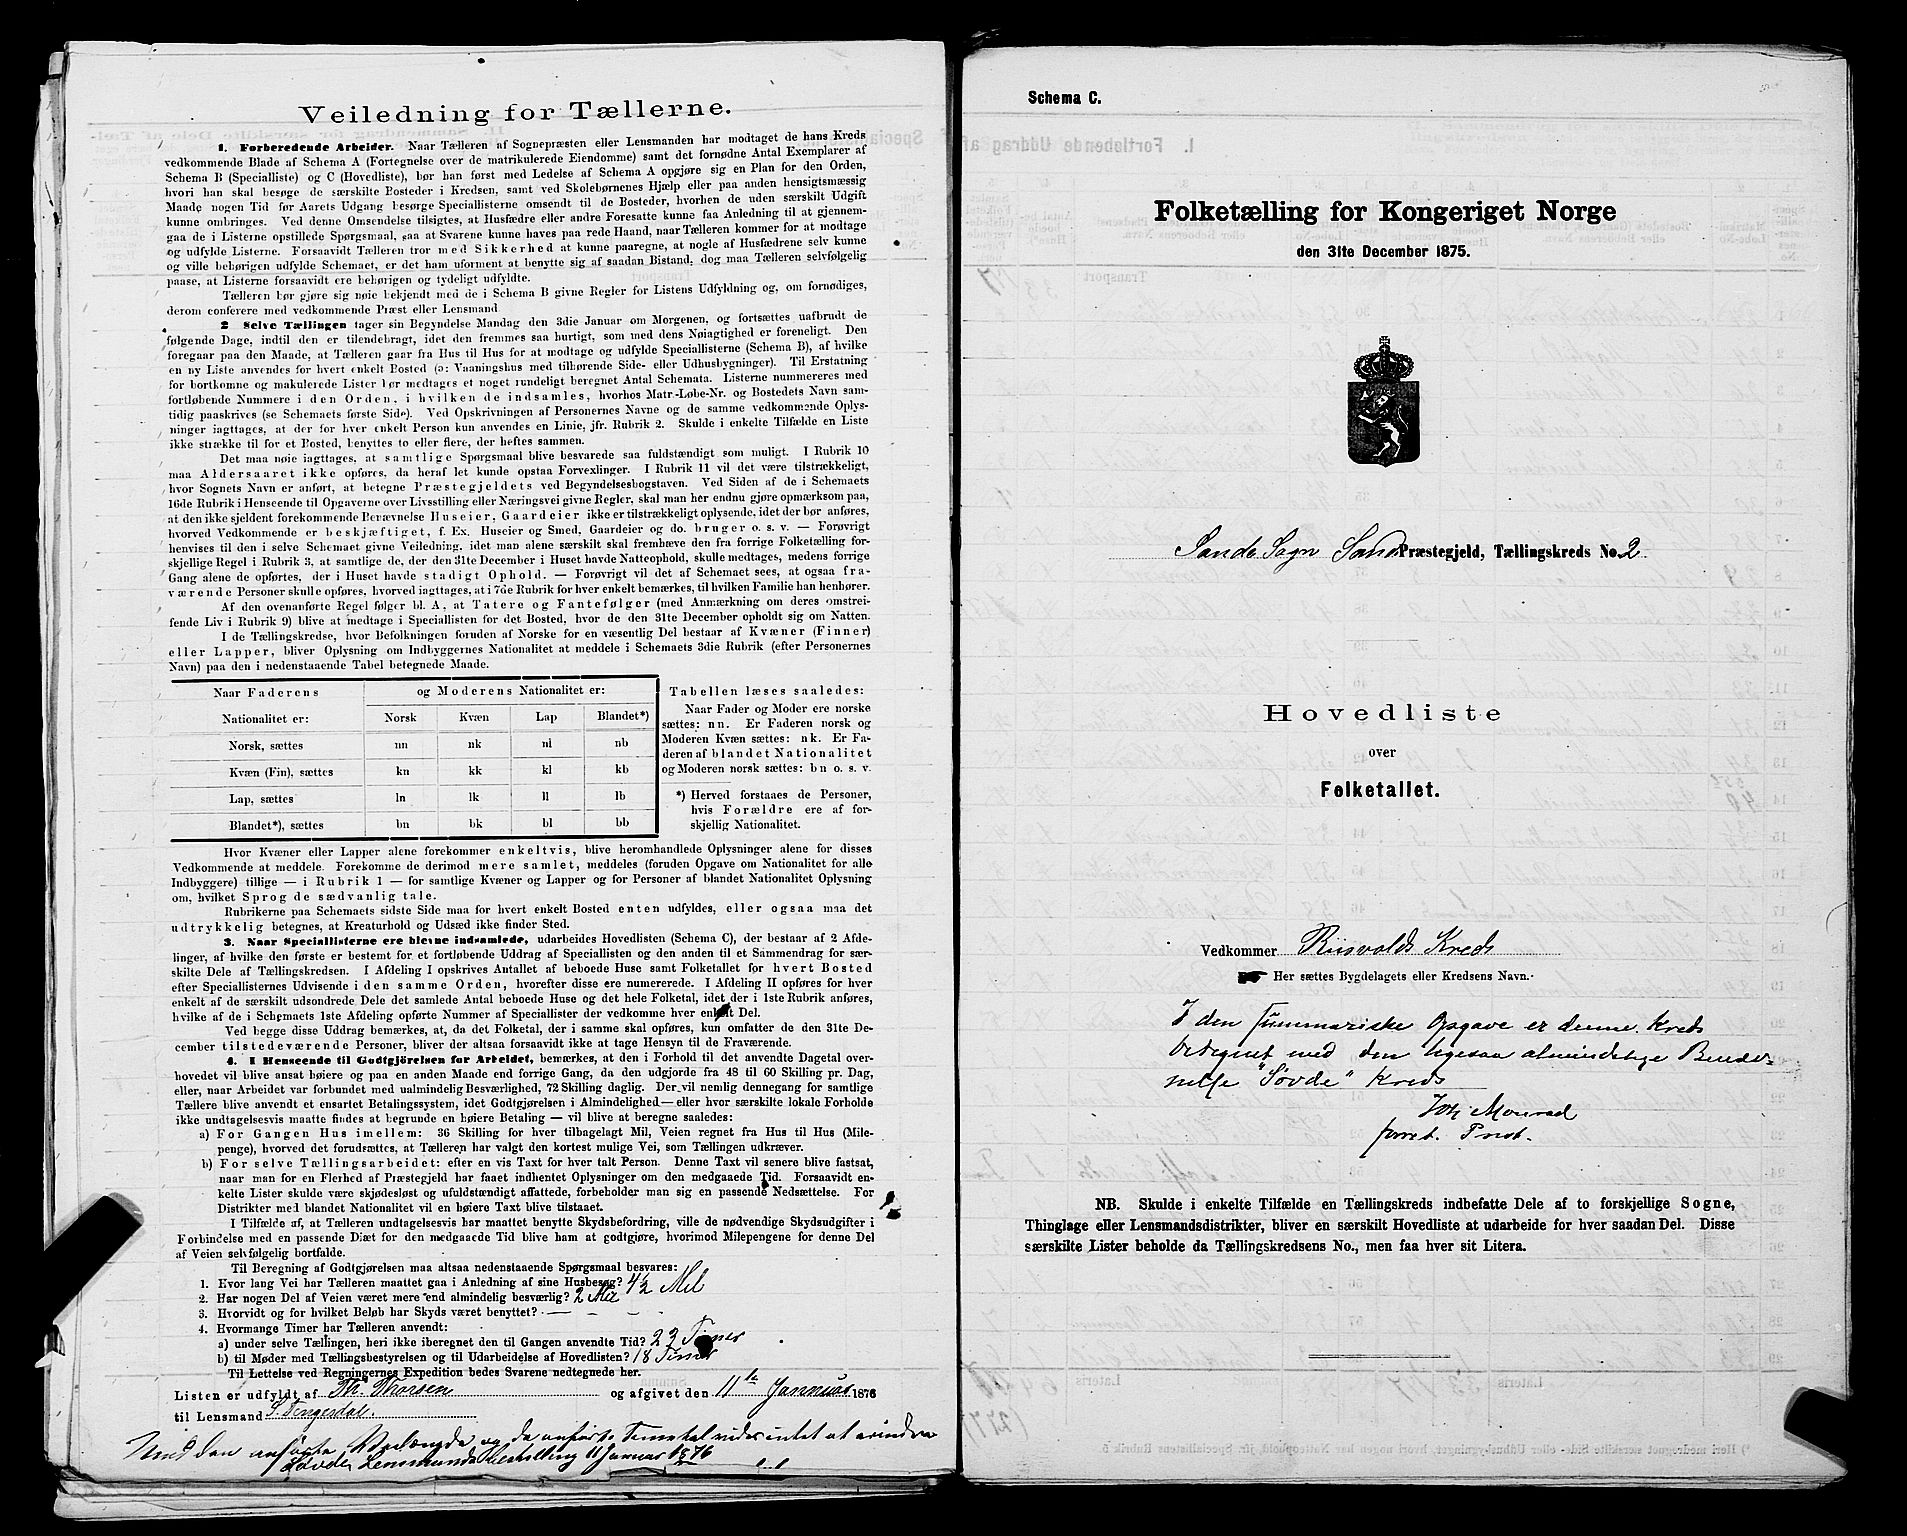 Veiledning for Tællerne.
1. Forberedende Arbeider. Naar Tælleren af Sognepræsten eller Lensmanden har modtaget de hans Kreds
vedkommende Blade af Schema A (Fortegnelse over de matrikulerede Eiendomme) samt det fornødne Antal Exemplarer af
Schema B (Specialliste) og C (Hovedliste), bør han først med Ledelse af Schema A opgjøre sig en Plan for den Orden,
hvori han skal besøge de særskilte Bosteder i Kredsen, samt ved Skolebørnenes Hjælp eller paa anden hensigtsmæssig
Maade nogen Tid før Aarets Udgang besørge Speciallisterne omsendt til de Bosteder, hvorhen de uden særskilt Udgift
kunne ombringes. Ved denne Omsendelse tilsigtes, at Husfædre eller andre Foresatte kunne faa Anledning til at gjennem-
gaa de i Listerne opstillede Spørgsmaal, saa at Svarene kunne haves paa rede Haand, naar Tælleren kommer for at modtage
og udfylde Listerne. Forsaavidt Tælleren tror med Sikkerhed at kunne paaregne, at nogle af Husfædrene selv kunne
og ville behørigen udfylde Schemaet, er det ham uforment at benytte sig af saadan Bistand, dog maa Tælleren selvfølgelig
paase, at Listerne forsaavidt ere behørigen og tydeligt udfyldte.
Tælleren bør gjøre sig nøie bekjendt med de i Schema B givne Regler for Listens Udfyldning og, om fornødiges,
derom conferere med vedkommende Præst eller Lensmand
2 Selve Tællingen tager sin Begyndelse Mandag den 3die Januar om Morgenen, og fortsættes uafbrudt de
følgende Dage, indtil den er tilendebragt, idet den fremmes saa hurtigt, som med dens Nøiagtighed er foreneligt. Den
foregaar paa den Maade, at Tælleren gaar fra Hus til Hus for at modtage og udfylde Speciallisterne (Schema B), af hvilke
en ny Liste anvendes for hvert enkelt Bosted (ɔ: Vaaningshus med tilhørende Side- eller Udhusbygninger). Til Erstatning
for bortkomne og makulerede Lister bør medtages et noget rundeligt beregnet Antal Schemata. Listerne nummereres med
fortløbende Nummere i den Orden, i hvilken de indsamles, hvorhos Matr.-Løbe-Nr. og Bostedets Navn sam-
tidig paaskrives (se Schemaets første Side). Ved Opskrivningen af Personernes Navne og de samme vedkommende Oplys-
ninger iagttages, at der for hver enkelt Person kun anvendes en Linie, jfr. Rubrik 2. Skulde i enkelte Tilfælde en Liste
ikke strække til for et Bosted, benyttes to eller flere, der heftes sammen.
Det maa nøie iagttages, at samtlige Spørgsmaal blive besvarede saa fuldstændigt som muligt. I Rubrik 10
maa Aldersaaret ikke opføres, da heraf let kunde opstaa Forvexlinger. I Rubrik 11 vil det være tilstrækkeligt,
hvor Sognets Navn er anført, at betegne Præstegjeldets ved Begyndelsesbogstaven. Ved Siden af de i Schemaets
16de Rubrik i Henseende til Opgaverne over Livsstilling eller Næringsvei givne Regler, skal man her endnu gjøre opmærksom paa,
at den ikke sjeldent forekommende Benævnelse Huseier, Gaardeier ikke er tilstrækkeligt oplysende, idet der bør anføres,
hvorved Vedkommende er beskjæftiget, f. Ex. Huseier og Smed, Gaardeier og do. bruger o. s. v. — Forøvrigt
henvises til den i selve Schemaet givne Veiledning, idet man alene særskilt skal fremhæve den fra forrige Folketælling for-
skjellige Regel i Rubrik 3, at samtlige de, der den 31te December i Huset havde Natteophold, skulle medtages, medens forrige
Gang alene de opførtes, der i Huset havde stadigt Ophold. — Forøvrigt vil det af Schemaet sees, at ogsaa fra-
værende Personer skulle opføres, hvorved iagttages, at i 7de Rubrik for hver enkelt bemærkes, til hvilken Familie han henhører.
Af den ovenanførte Regel følger bl. A, at Tatere og Fantefølger (med Anmærkning om deres omstrei-
fende Liv i Rubrik 9) blive at medtage i Speciallisten for det Bosted, hvor de den 31te December opholdt sig om Natten.
I de Tællingskredse, hvor Befolkningen foruden af Norske for en væsentlig Del bestaar af Kvæner (Finner)
eller Lapper, bliver Oplysning om Indbyggernes Nationalitet at meddele i Schemaets 3die Rubrik (efter Personernes
Navn) paa den i nedenstaaende Tabel betegnede Maade.
Naar Faderens og Moderens Nationalitet er:
Nationalitet er: Norsk Kvæn Lap Blandet*)
Norsk, sættes nn nk nl nb
Kvæn (Fin), sættes kn kk kl kb
Lap, sættes ln lk ll lb
Blandet*), sættes bn bk bl bb
Tabellen læses saaledes:
Naar Fader og Moder ere norske
sættes: nn. Er Faderen norsk og
Moderen Kvæn sættes: nk. Er Fa-
deren af blandet Nationalitet
og Moderen norsk sættes: bn o. s. v.
*) Herved forstaaes de Personer,
hvis Forældre ere af for-
skjellig Nationalitet.
Hvor Kvæner eller Lapper alene forekommer enkeltvis, blive heromhandlede Oplysninger alene for disses
Vedkommende at meddele. Forekomme de derimod mere samlet, meddeles (foruden Opgave om Nationalitet for alle
Indbyggere) tillige — i Rubrik 1 — for samtlige Kvæner og Lapper og for Personer af blandet Nationalitet Oplysning
om, hvilket Sprog de sædvanlig tale.
Rubrikerne paa Schemaets sidste Side maa for hvert enkelt Bosted enten udfyldes, eller ogsaa maa det
udtrykkelig betegnes, at Kreaturhold og Udsæd ikke finder Sted.
3. Naar Speciallisterne ere blevne indsamlede, udarbeides Hovedlisten (Schema C), der bestaar af 2 Afde-
linger, af hvilke den første er bestemt for et fortløbende Uddrag af Speciallisten og den anden til et Sammendrag for sær-
skilte Dele af Tællingskredsen. I Afdeling I opskrives Antallet af beboede Huse samt Folketallet for hvert Bosted
efter Speciallisternes Udvisende i den samme Orden, hvorefter disse ere nummererede. I Afdeling II opføres for hver
enkelt af de særskilt udsondrede Dele det samlede Antal beboede Huse og det hele Folketal, idet der i 1ste Rubrik anføres,
hvilke af de i Schemaets 1ste Afdeling opførte Nummer af Speciallister der vedkomme hver enkelt Del.
Ved begge disse Uddrag bemærkes, at, da det Folketal, der i samme skal opføres, kun omfatter de den 31te De-
cember tilstedeværende Personer, bliver der altsaa forsaavidt ikke at tage Hensyn til de Fraværende.
4. I Henseende til Godtgjörelsen for Arbeidet, bemærkes, at den i Forhold til det anvendte Dagetal over-
hovedet vil blive ansat høiere og paa en anden Maade end forrige Gang, da den udgjorde fra 48 til 60 Skilling pr. Dag,
eller, naar Arbeidet var forbundet med ualmindelig Besværlighed, 72 Skilling daglig. Der vil nemlig dennegang for samtlige
Tællere blive anvendt et ensartet Betalingssystem, idet Godtgjørelsen i Almindelighed — eller hvor særskilte lokale Forholde
ikke undtagelsesvis maatte findes at begrunde en høiere Betaling — vil blive at beregne saaledes:
a) For Gangen Hus imellem: 36 Skilling for hver tilbagelagt Mil, Veien regnet fra Hus til Hus (Mile-
penge), hvorved det forudsættes, at Tælleren har valgt den kortest mulige Vei, som Tællingen udkræver.
b) For selve Tællingsarbeidet: efter en vis Taxt for hver talt Person. Denne Taxt vil senere blive fastsat,
naar man for en Flerhed af Præstegjeld har faaet indhentet Oplysninger om den medgaaede Tid. Forsaavidt en-
kelte Lister skulde være skjødesløst og ufuldstændigt affattede, forbeholder man sig en passende Nedsættelse. For
Distrikter med blandet Nationalitet vil en høiere Taxt blive tilstaaet.
I Tilfælde af, at Tælleren undtagelsesvis har maattet benytte Skydsbefordring, ville de nødvendige Skydsudgifter i
Forbindelse med en passende Diæt for den medgaaede Tid blive ham at godtgjøre, hvorimod Milepengene for denne Del
af Veien selvfølgelig bortfalde.
Til Beregning af Godtgjørelsen maa altsaa nedenstaaende Spørgsmaal besvares:
1. Hvor lang Vei har Tælleren maattet gaa i Anledning af sine Husbesøg? 4½ Mil
2. Har nogen Del af Veien været mere end almindelig besværlig? 2 Mil
3. Hvorvidt og for hvilket Beløb har Skyds været benyttet? —
4. Hvormange Timer har Tælleren anvendt:
a) under selve Tællingen, heri ikke iberegnet den til Gangen anvendte Tid? 23 Timer
b) til Møder med Tællingsbestyrelsen og til Udarbeidelse af Hovedlisten? 18 Timer
Til Lettelse ved Regningernes Expedition bedes Svarene nedtegnede her.
Listen er udfyldt af Th. Thorsen og afgivet den 11te Januar 1876
til Lensmand S. Tengesdal.
Mod den anførte Veilængde og da anførte Timetal vides intet at erindre
Søvde Lensmands Bestilling 11 Januar 1876
Schema C.
Folketælling for Kongeriget Norge
den 31te December 1875.
Sande Sogn Sand Præstegjeld, Tællingskreds No. 2.
Hovedliste
over
Folketallet.
Vedkommer Riisvolds Kreds
Her sættes Bygdelagets eller Kredsens Navn.
I den summariske Opgave er denne Kreds
betegnet med den ligesaa almindelige Benæv-
nelse "Søvde" Kreds
Joh Monrad
forret. Prost.
NB. Skulde i enkelte Tilfælde en Tællingskreds indbefatte Dele af to forskjellige Sogne,
Thinglage eller Lensmandsdistrikter, bliver en særskilt Hovedliste at udarbeide for hver saadan Del. Disse
særskilte Lister beholde da Tællingskredsens No., men faa hver sit Litera.